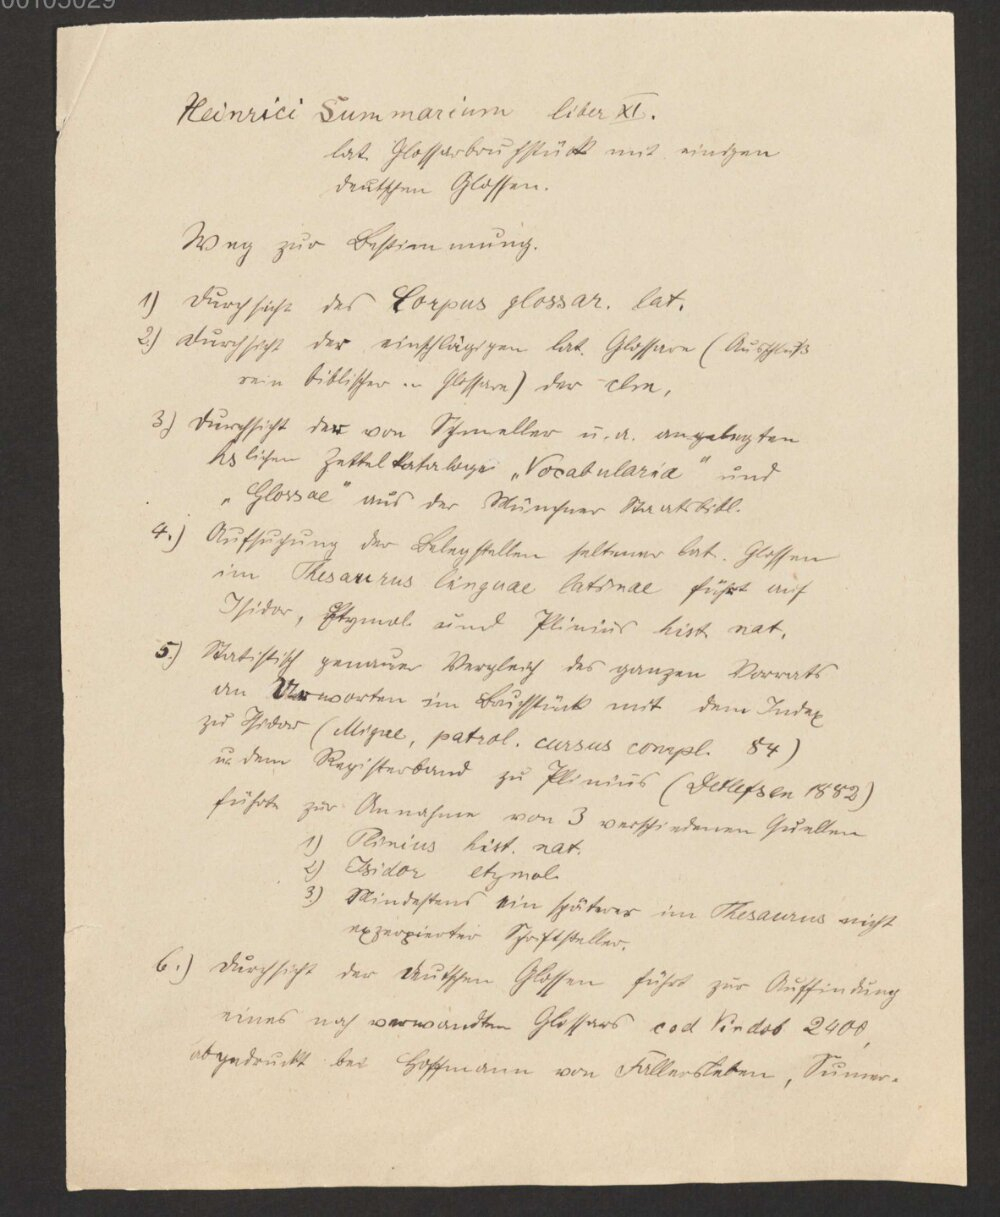 00105029
Heinrici Summarium liber XI.
lat. Glossarbruchstück mit einigen
deutschen Glossen.
Weg zur Bestimmung.
1) Durchsicht des Corpus glossar. lat.
2) Durchsicht der einschlägigen lat. Glossare (Ausschluß
rein biblischer Glossare) der clm,
3) Durchsicht der von Schmeller u. a. angelegten
hslichen Zettelkataloge „Vocabularia" und
„Glossae" aus der Münchner Staatsbibl.
4.) Aufsuchung der Belegstellen seltener lat. Glossen
im Thesaurus linguae latinae führt auf
Isidor, Etymol. und Plinius hist. nat.
5.) Statistisch genauer Vergleich des ganzen Vorrats
an worten im Bruchstück mit dem Index
zu Isidor (Migne, patrol. cursus compl. 84)
u. dem Registerband zu Plinius (Detlefsen 1882)
führte zur Annahme von 3 verschiedenen Quellen
1) Plinius hist. nat.
2) Isidor etymol.
3) Mindestens ein späterer im Thesaurus nicht
exzerpierter Schriftsteller.
6.) Durchsicht der deutschen Glossen führt zur Auffindung
eines nah verwandten Glossars cod Vindob 2400,
abgedruckt bei Hoffmann von Fallersleben, Sumer-